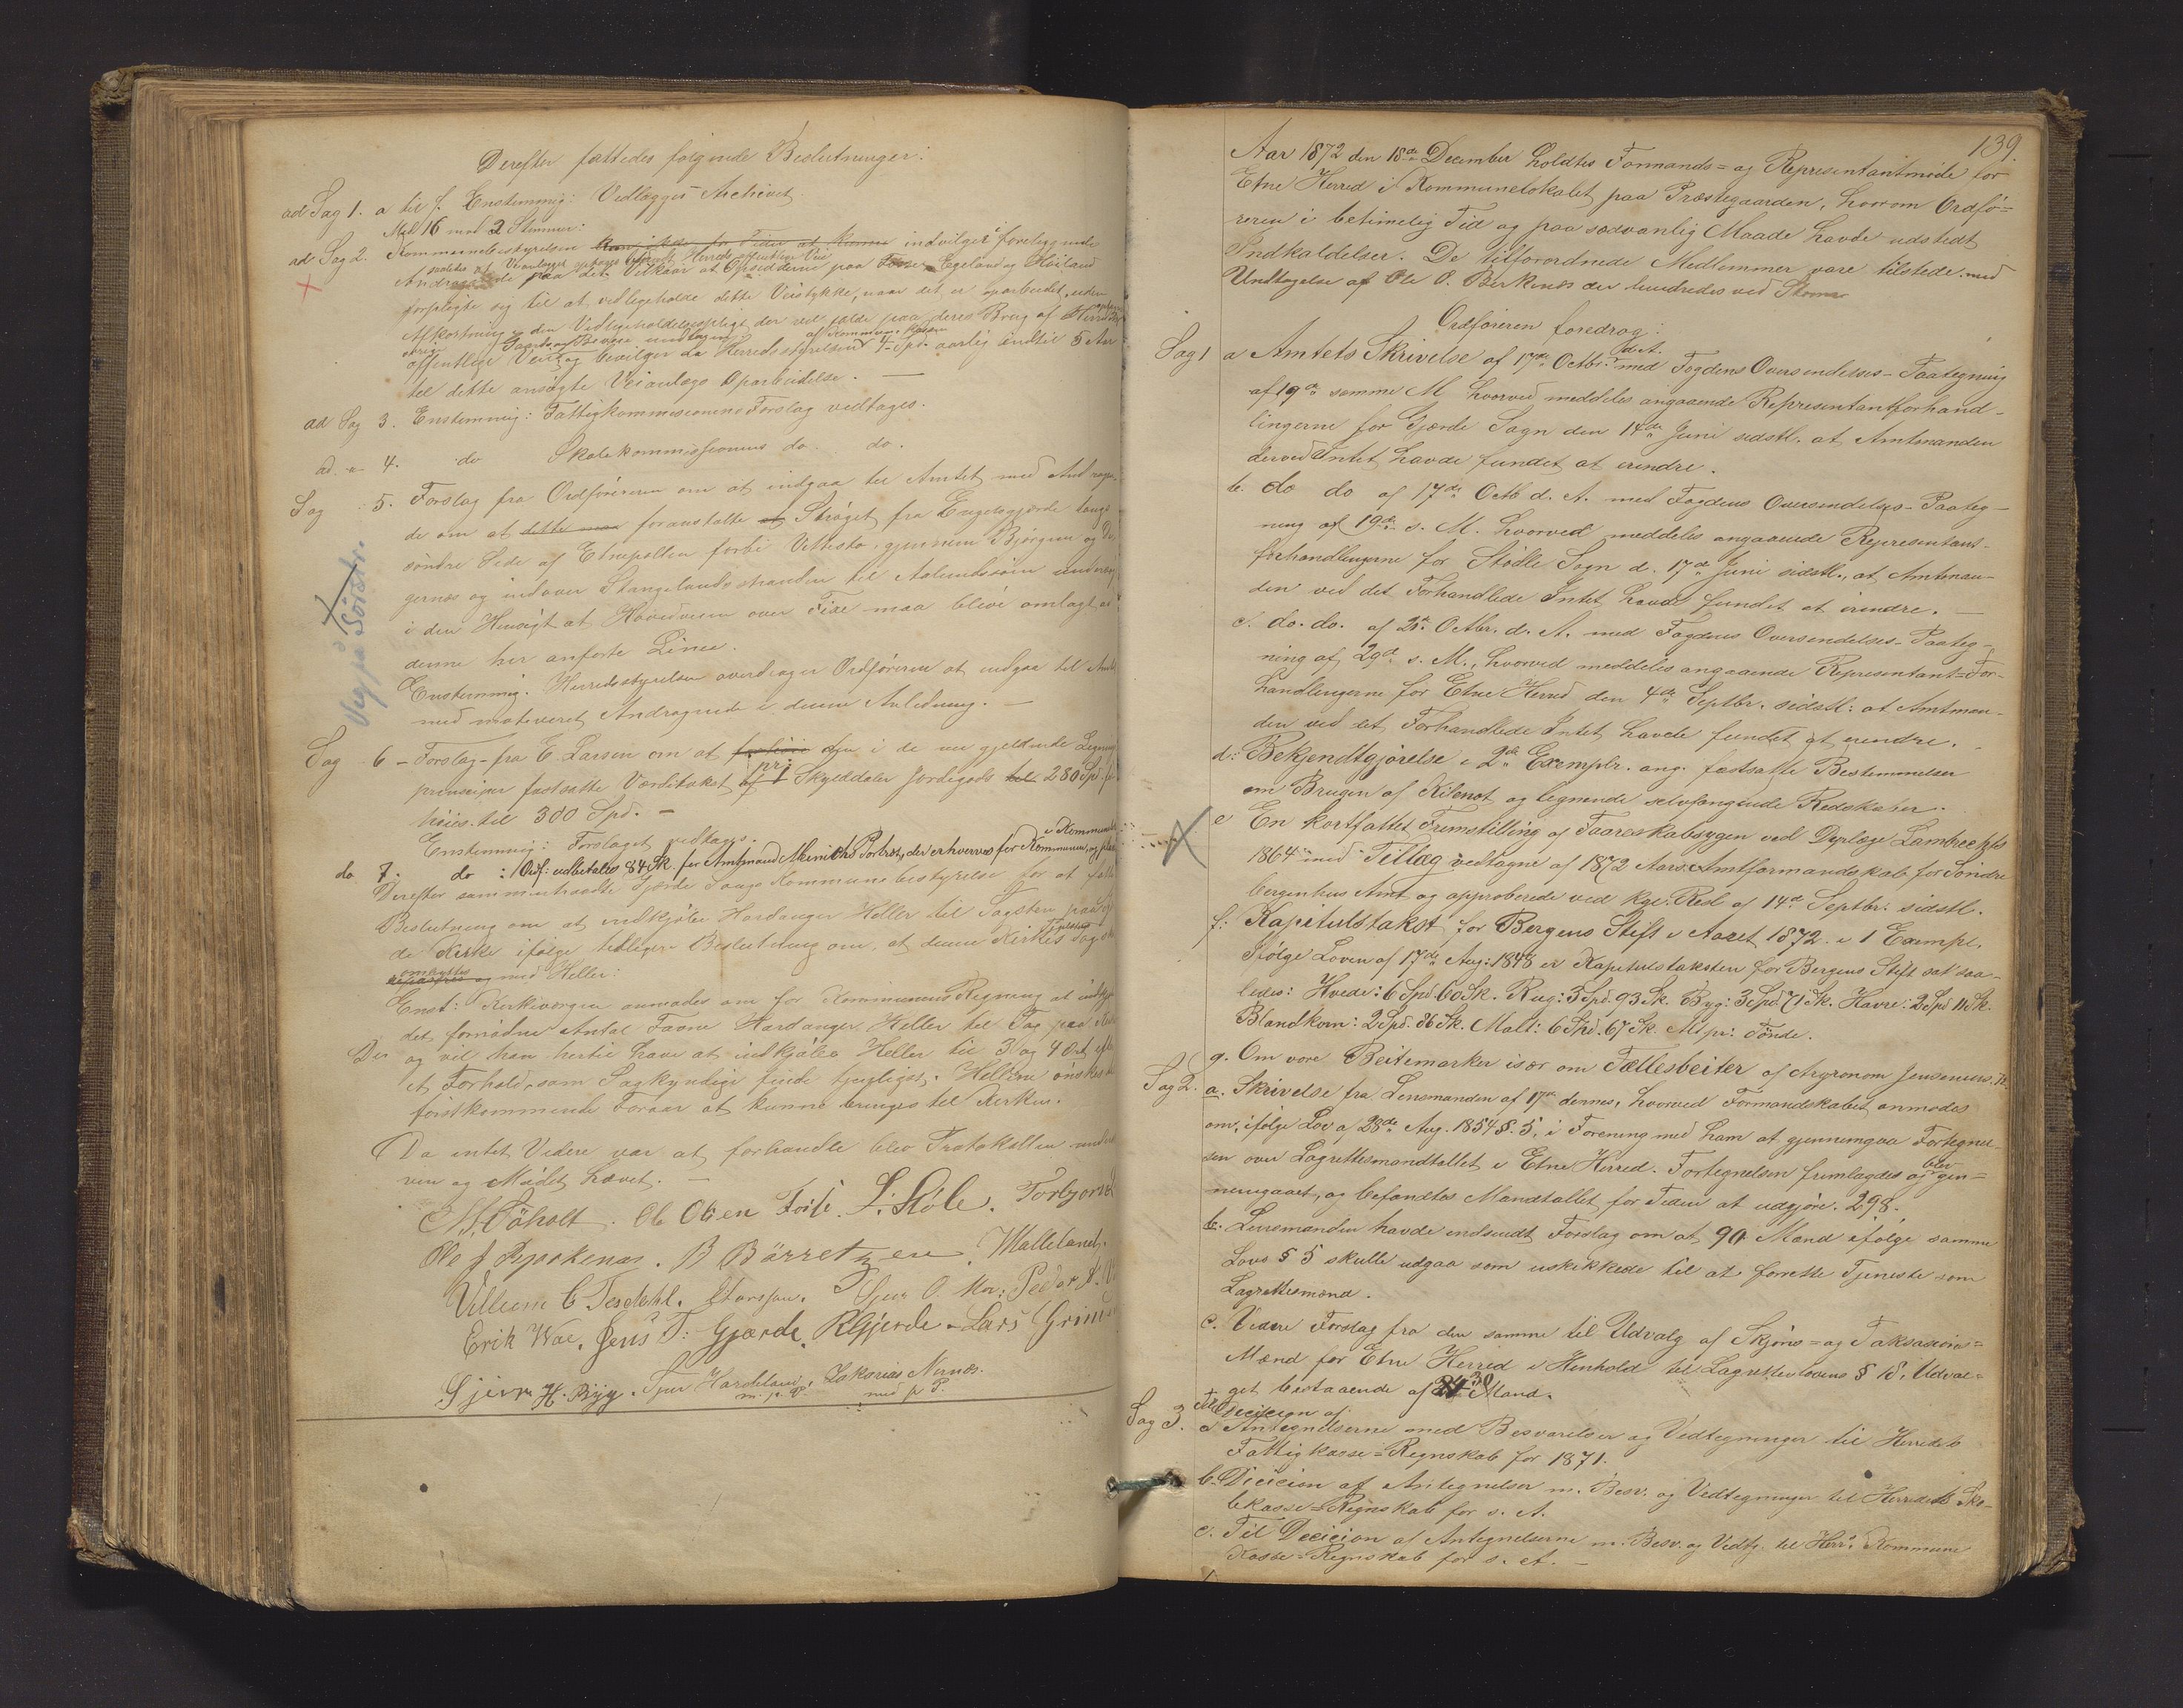 Derefter fattedes følgende Beslutninger:
ad Sag 1. a til f. Enstemmig: Vedlægges Archivet
Med 16 mod 2 Stemmer:
ad Sag 2. Kommunebestyrelsen kan ikke for Tiden at kunne indvilges i foreliggende
saaledes at Veianlægget optages blandt Herreds offentlige Veie
Andragende paa det Vilkaar at Opsidderne paa Fosse, Egeland og Høiland
forpligte sig til at vedligeholde dette Veistykke, naar det er oparbeidet, uden
Afkortning i den Vedligeholdelsespligt der vil falde paa deres Brug af Herredets
øvrige
offentlige Veie, og bevilger da Herredsstyrelsen af Kommunekassen 4 Spd. aarlig indtil 5 Aar
til dette ansøgte Veianlægs Oparbeidelse. —
ad Sag 3. Enstemmig: Fattigkommissionens Forslag vedtages.
ad. " 4. do Skolekommissionens do. do.
Sag 5. Forslag fra Ordføreren om at indgaa til Amtet med Andragen-
de om at dette maa foranstalte at Strøget fra Engelsgjerde langs
søndre Side af Etnepollen forbi Vettestø, gjennem Bjørgum og
gernæs og indover Stangelandsstranden til Aalundssøen undersøg
i den Hensigt at Hovedveien over Fixe maa blive omlagt ad
denne her anførte Linea.
Enstemmig. Herredsstyrelsen overdrager Ordføreren at indgaa til Amtet
med motiveret Andragende i denne Anledning. —
Vegjå Sörstr.
Sag 6 - Forslag fra E. Larsen om at den i de nu gjeldende Ligning
prinsiper fastsatte Værditakst pr: af 1 Skylddaler Jordegods til 280 Spd. for
høies til 300 Spd. —
Enstemmig: Forslaget vedtages.
do 7. do : Ordf: udbetales 84 Sk. for Amtmand Meinichs Portræt, der erhverves for Kommunen, og
i Kommunel
Derefter sammentraadte Gjerde Sogns Kommunebestyrelse for at fatte
Beslutning om at indkjøbe Hardanger Heller til Tagsten paa
de Kirke ifølge tidligere Beslutning om, at denne Kirkes Tag
omlægges og med Heller:
Enst: Kirkeværgen anmodes om for Kommunens Regning at indkjø
det fornødne Antal Favne Hardanger Heller til Tag paa
og vil han hertil have at indkjøbes Heller til 3 og 4 Ort efter
et Forhold, som Sagkyndige finde tjenligst. Hellerne ønskes
førstkommende Foraar at kunne bringes til Kirken.
Da intet Videre var at forhandle blev Protokollen under
ven og Mødet hævet. —
Ole Olsen S. Støle. Torbjørn
B Börretzen. Malleland.
Villum C Tesdahl. Peder
Erik Wae. Jens T: Gjærde. Lars Grins
Sjur H. Byg. Sjur Hardeland, Zakarias Nernes.
m. p. P. med p P.
139.
Aar 1872 den 18de December holdtes Formands- og Representantmøde for
Etne Herred i Kommunelokalet paa Præstegaarden, hvorom Ordfø=
reren i betimelig Tid og paa sædvanlig Maade havde udstedt
Indkaldelser. De tilforordnede Medlemmer vare tilstede med
Undtagelse af Ole O. Berkenes der hindredes ved Storm
Ordføreren foredrog:
Sag 1 a Amtets Skrivelse af 17de Octbr. d. A. med Fogdens Oversendelses-Paategning
af 19de samme M. hvorved meddeles angaaende Representantforhand-
lingerne for Gjerde Sogn den 14de Juni sidstl. at Amtmanden
derved Intet havde fundet at erindre.
b. do do af 17de Octb d. A. med Fogdens Oversendelses-Paateg-
ning af 19de s. M. hvorved meddeles angaaende Representant-
forhandlingerne for Stødle Sogn d. 17de Juni sidstl., at Amtman-
den ved det Forhandlede Intet havde fundet at erindre. —
c. do. do. af 21. Octbr. d. A. med Fogdens Oversendelses-Paateg-
ning af 29de s. M., hvorved meddeles angaaende Representant=For-
handlingerne for Etne Herred den 4de Septbr. sidstl: at Amtman-
den ved det Forhandlede Intet havde fundet at erindre.
d: Bekjendtgjørelse i 2de Exemplr. ang. fastsatte Bestemmelser
om Brugen af Kilenot og lignende selvfangende Redskaber.
e En kortfattet Fremstilling af Faareskabsygen ved Dyrlæge Lambrechts
1864 med Tillæg vedtagne af 1872 Aars Amtformandskab for Søndre
bergenhus Amt og approberede ved Kgl. Resl af 14de Septbr: sidstl.
f: Kapitulstakst for Bergens Stift i Aaret 1872. i 1 Exempl.
Ifølge Loven af 17de Aug: 1848 er Kapitulstaksten for Bergens Stift sat saa-
ledes: Hvede: 6 Spd 60 Sk. Rug: 3 Spd. 93 Sk. Byg: 3 Spd 71 Sk. Havre: 2 Spd 11 Sk.
Blandkorn: 2 Spd. 86 Sk. Malt: 6 Spd. 67 Sk. Alt pr: Tønde.
g. Om vore Beitemarker især om Fællesbeiter af Agronom Jensenius.
Sag 2. a. Skrivelse fra Lensmanden af 17de dennes, hvorved Formandskabet anmodes
om, ifølge Lov af 28de Aug. 1854 §. 5, i Forening med ham at gjennemgaa Fortegnel-
sen over Lagrettesmandtallet i Etne Herred. Fortegnelsen fremlagdes og blev gjen=
nemgaaet, og befandtes Mandtallet for Tiden at udgjøre. 298.
b. Lensmanden havde indsendt Forslag om at 90 Mænd ifølge samme
Lovs § 5 skulle udgaa som uskikkede til at forrette Tjeneste som
Lagrettesmænd.
c. Videre Forslag fra den samme til Udvalg af Skjøns= og Taksasions=
Mænd for Etne Herred i Henhold til Lagrettes lovens § 18, Udval=
get bestaaende af 30 Mænd.
Sag 3. Til Decision af
a Antegnelserne med Besvarelser og Vedtegninger til Herredets
Fattigkasse=Regnskab for 1871.
b. Decision af Antegnelser m. Besv. og Vedtegninger til Herredets Sko-
lekasse=Regnskab for s. A.
c. Til Decision af Antegnelserne m. Besv. og Vedtg. til Herr: Kommune
Kasse=Regnskab for s. A. —